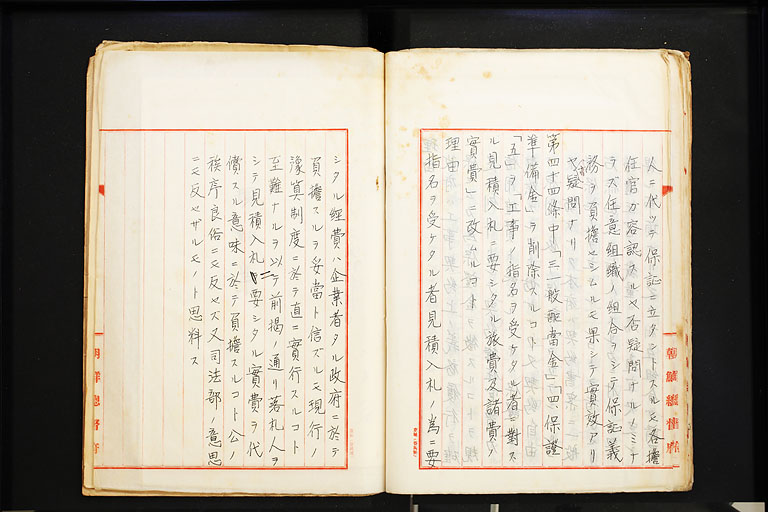 人ニ代ツテ保証ニ立タントスルモ各擔
任官カ容認スルヤ否疑問ナルノミナ
ラズ任意組織ノ組合ヲシテ保証義
務ヲ負擔セシムルモ果シテ實效アリ
ヤ疑問ナリ
第四十四條中「三一般配當金」「四保證
準備金」ヲ削除スルコト
「五」ヲ「工事ノ指名ヲ受ケタル者ニ對ス
ル見積入札ニ要シタル旅費及諸費ノ
實費」ニ改ムルコト
理由
指名ヲ受ケタル者見積入札ノ為ニ要
シタル經費ハ企業者タル政府ニ於テ
負擔スルヲ妥當ト信ズルモ現行ノ
豫算制度ニ於テ直ニ實行スルコト
至難ナルヲ以テ前掲ノ通リ落札人ヲ
シテ見積入札ニ要シタル實費ヲ代
償スル意味ニ於テ負擔スルコト公ノ
秩序良俗ニモ反セズ又司法部ノ意思
ニモ反セザルモノト思料ス
朝鮮總督府
朝鮮總督府